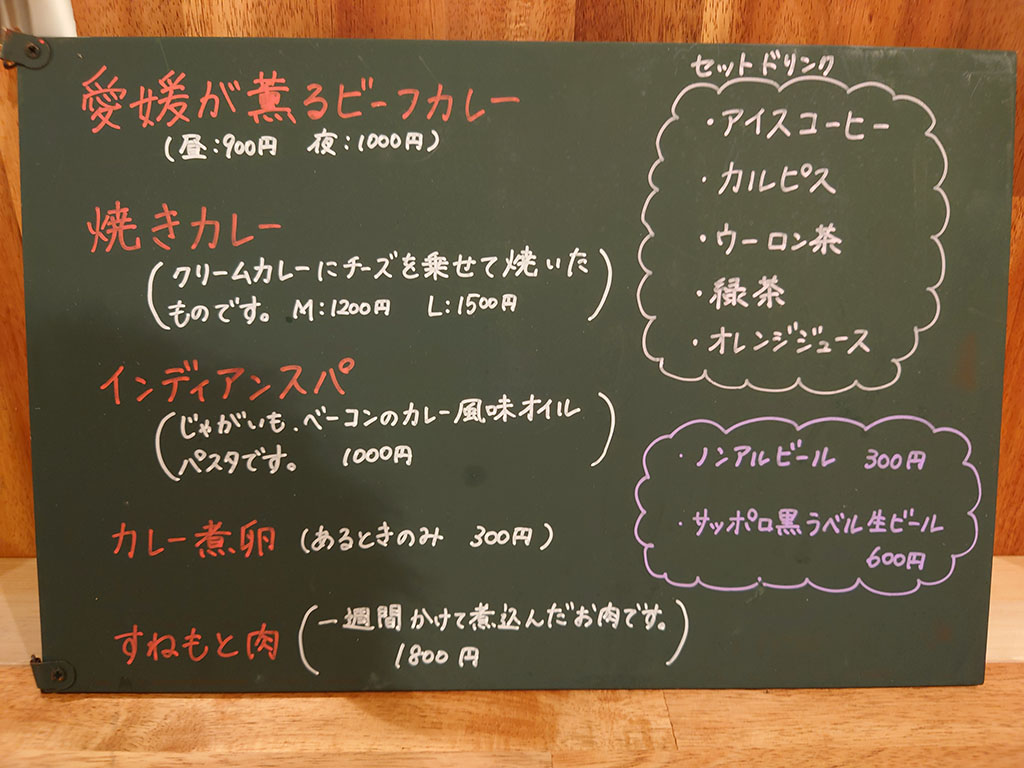 愛媛が薫るビーフカレー
(昼:900円 夜:1000円)
焼きカレー
(クリームカレーにチーズを乗せて焼いた
ものです。 M:1200円 L:1500円)
インディアンスパ
(じゃがいも、ベーコンのカレー風味オイル
パスタです。 1000円)
カレー煮卵 (あるときのみ 300円)
すねもと肉 (一週間かけて煮込んだお肉です。
1800円)
セットドリンク
・アイスコーヒー
・カルピス
・ウーロン茶
・緑茶
・オレンジジュース
・ノンアルビール 300円
・サッポロ黒ラベル生ビール
600円